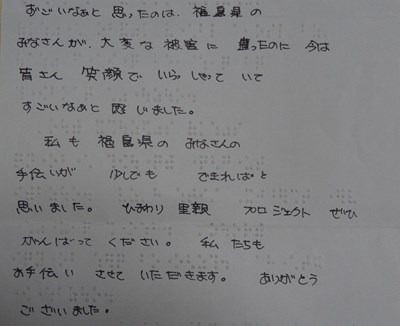 すごいなぁと 思ったのは、福島県の
みなさんが、大変な 被害に 遭ったのに 今は
皆さん 笑顔で いらっしゃって いて
すごいなぁと 感じました。
私も 福島県の みなさんの
手伝いが 少しでも できればと
思いました。 ひまわり 里親 プロジェクト ぜひ
がんばって ください。 私 たちも
お手伝い させて いただきます。 ありがとう
ございました。